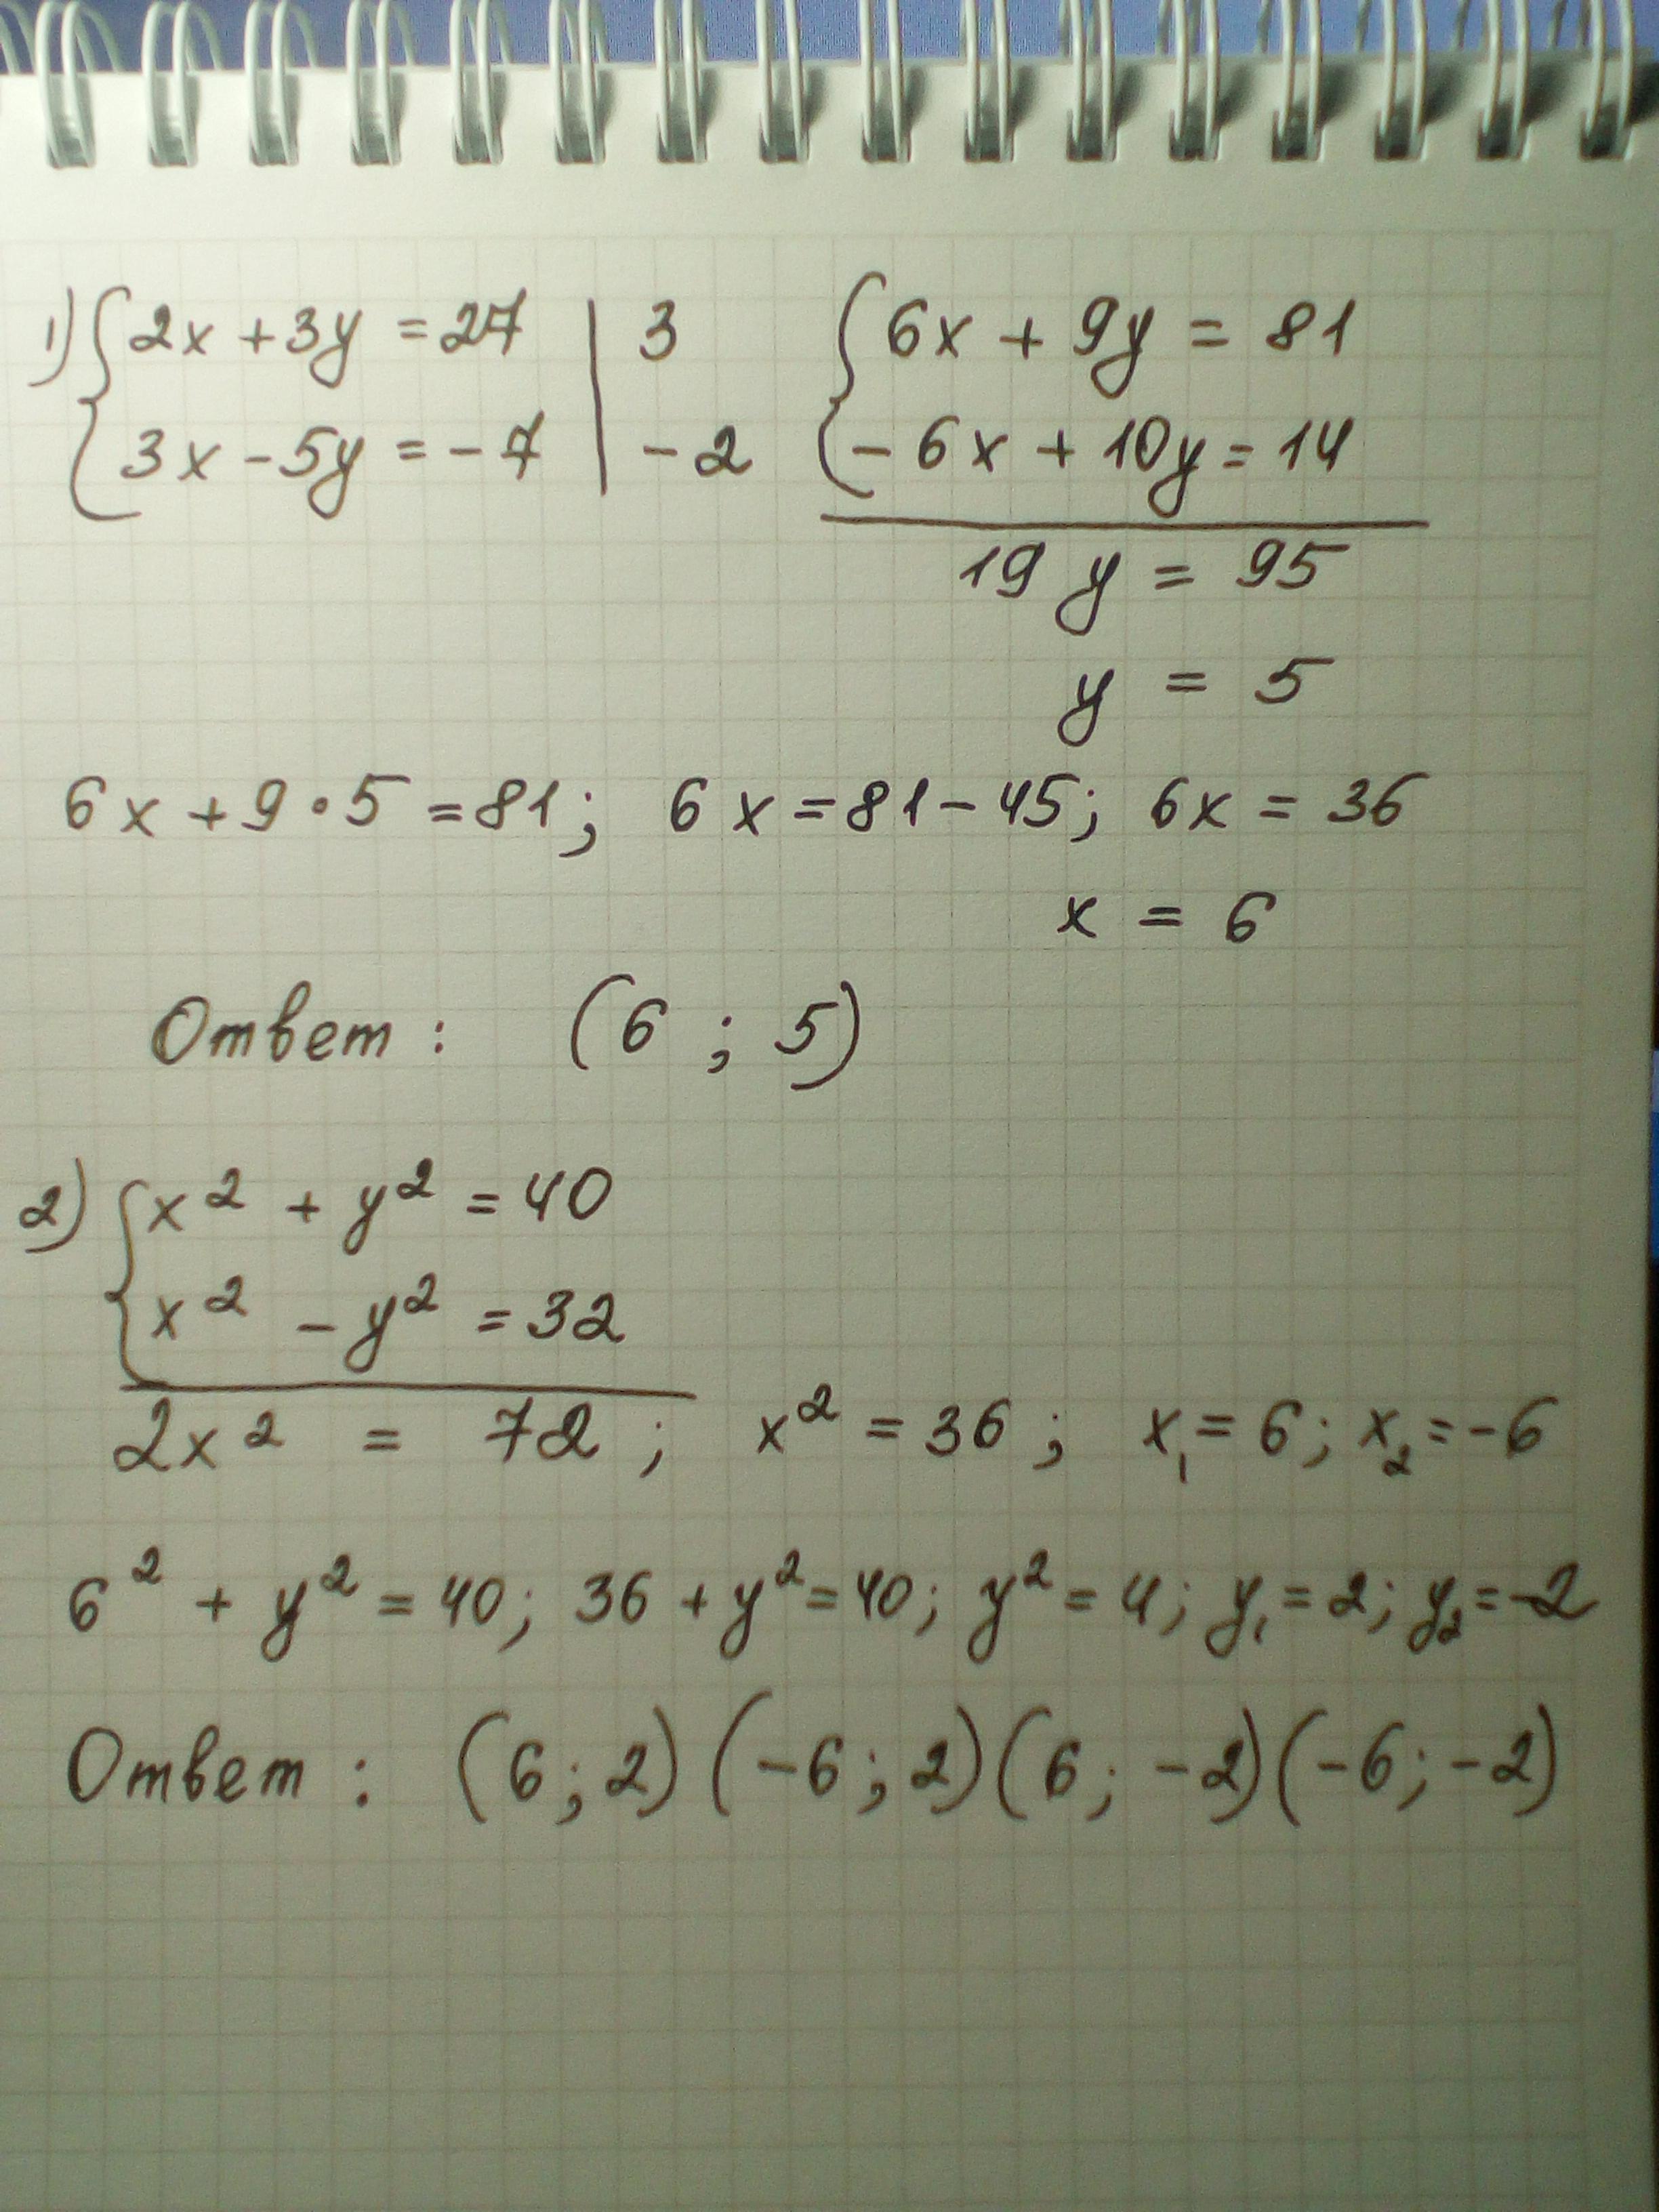 1) { 2x + 3y = 27 | 3 { 6x + 9y = 81
3x - 5y = - 7 | - 2 - 6x + 10y = 14
19 y = 95
y = 5
6x + 9 · 5 = 81; 6x = 81 - 45; 6x = 36
x = 6
Ответ: (6 ; 5)
2) { x² + y² = 40
x² - y² = 32
2x² = 72 ; x² = 36 ; x₁ = 6 ; x₂ = -6
6² + y² = 40; 36 + y² = 40; y² = 4; y₁ = 2; y₂ = -2
Ответ: (6 ; 2) (-6 ; 2) (6 ; -2) (-6 ; -2)